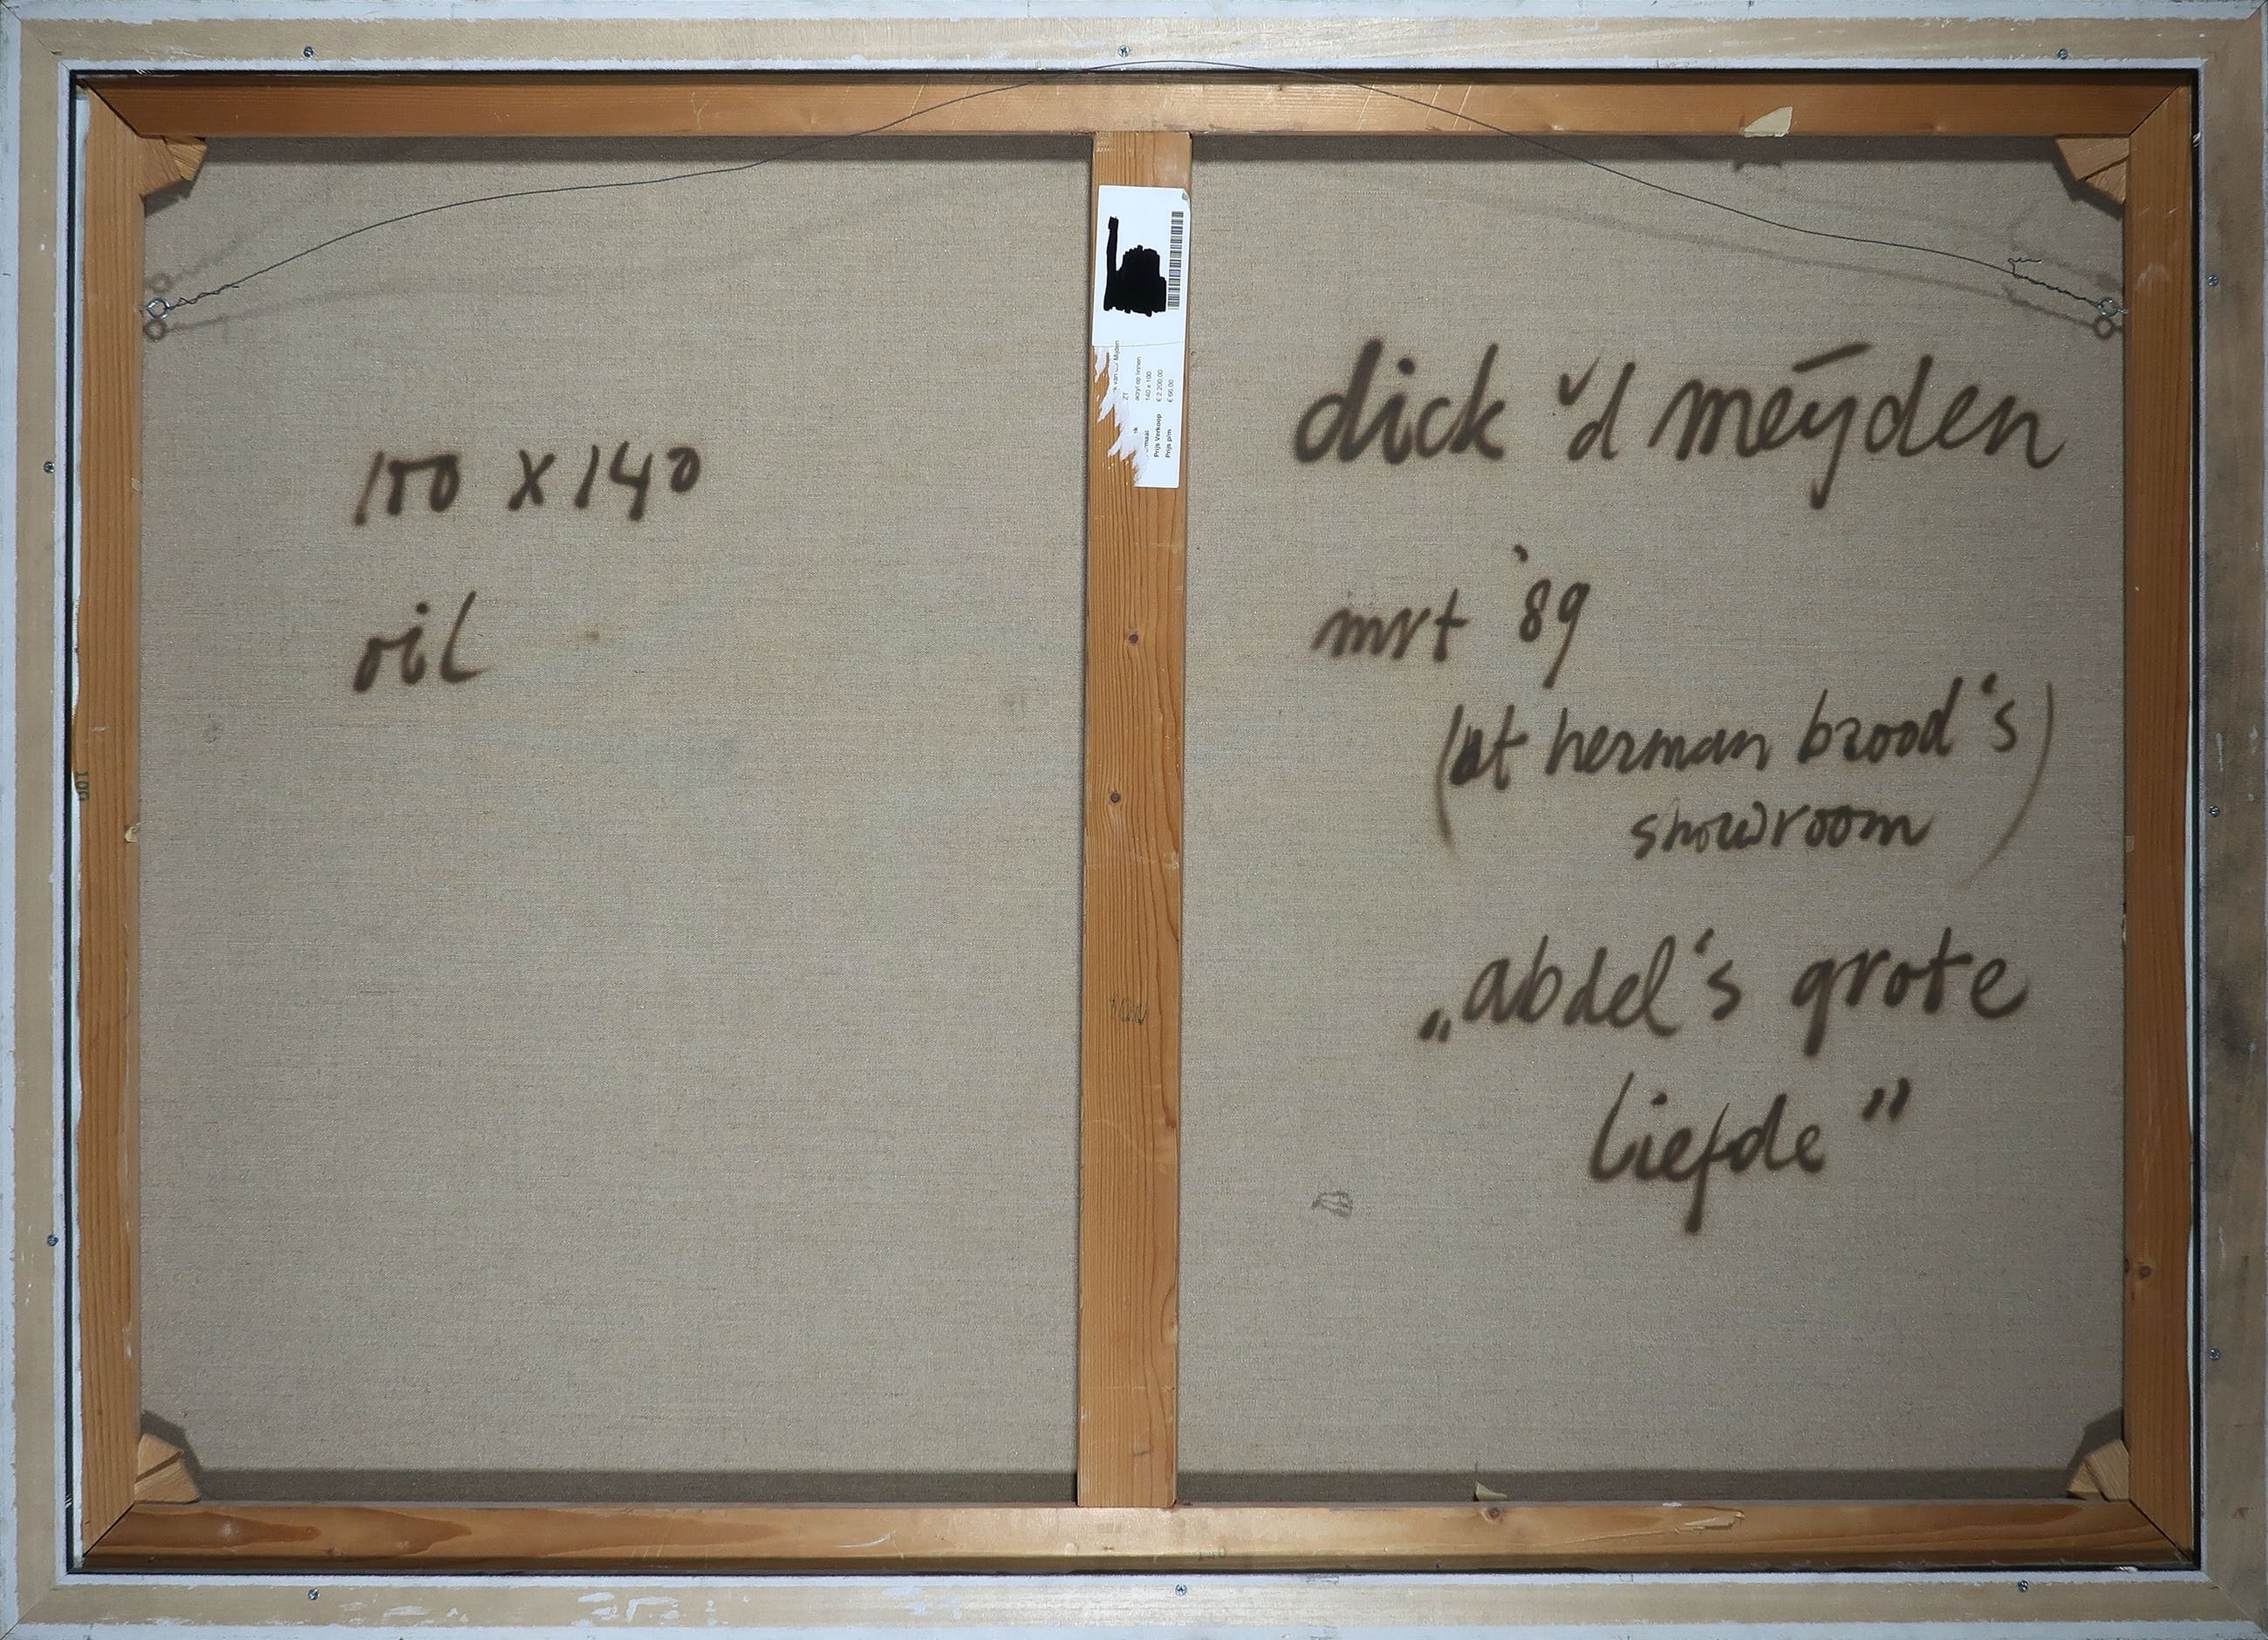 100 x 140
oil
dick v/d meyden
mrt '89
(at herman brood's
showroom)
„abdel's grote
liefde”
Mijden
ZT
acryl op linnen
140 x 100
Prijs Verkoop € 2.200,00
Prijs p/m € 66,00
100
140